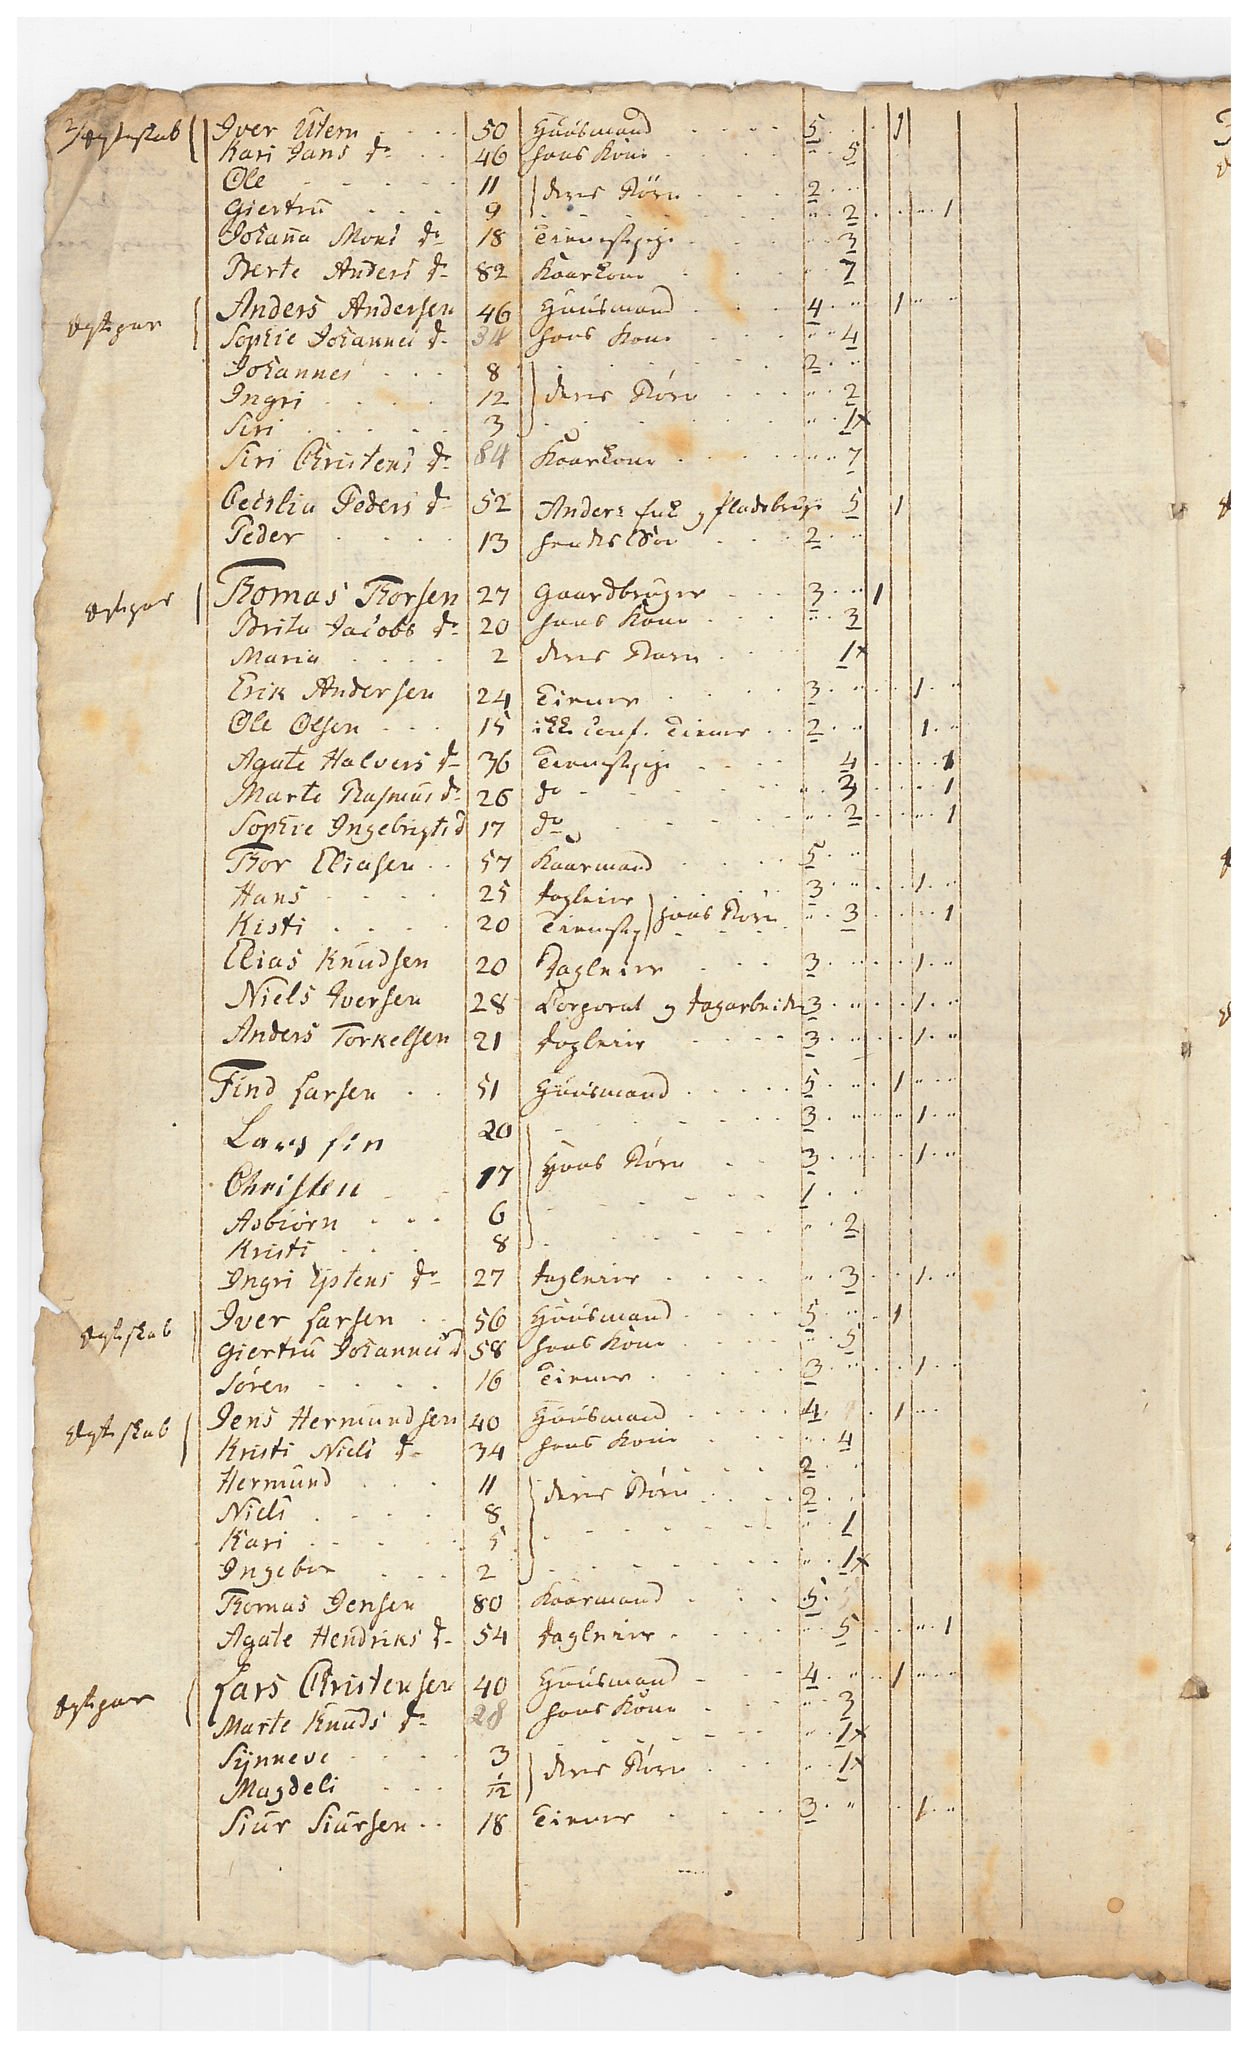 Ægteskab Iver Utern 50 Huusmand 5 1
Kari Jans dr 46 hans Kone 5
Ole 11 deres Børn 2
Giertru 9 2 1
Johana Mons dr 18 Tienistepige 3
Berte Anders dr 82 Kaarkone 7
Ægtepar Anders Andersen 46 Huusmand 4 1
Sophie Johannes dr 34 hans Kone 4
Johannes 8 2
Ingri 12 deres Børn 2
Siri 3 1x
Siri Christens dr 84 Kaarkone 7
Cecilia Peders dr 52 5 1
Peder 13 hendes Søn 2
Ægtepar Thomas Thorsen 27 Gaardbruger 3 1
Brita Jacobs dr 20 hans Kone 3
Maria 2 deres Barn 1x
Erik Andersen 24 Tiener 3 1
Ole Olsen 15 ikke conf. Tiener 2 1
Agate Halvers dr 36 Tienistepige 4 1
Marte Rasmus dr 26 do 3 1
Sophie Ingebrigts d 17 do 2 1
Thor Eliasen 57 Kaarmand 5
Hans 25 dagleier 3 1
Kisti 20 Tienistep hans Børn 3 1
Elias Knudsen 20 Dagleier 3 1
Niels Iversen 28 Corporal og dagarbeider 3 1
Anders Torkelsen 21 dagleier 3 1
Find Larsen 51 Huusmand 5 1
Lars fin 20 3 1
Christen 17 Hans Børn 3 1
Asbiørn 6 1
Kristi 8 2
Ingri Ÿstens dr 27 dagleier 3 1
Ægteskab Iver Larsen 56 Huusmand 5 1
Giertru Johannes d 58 hans Kone 5
Søren 16 Tiener 3 1
Ægteskab Jens Hermundsen 40 Huusmand 4 1
Kristi Niels dr 34 hans Kone 4
Hermund 11 deres Børn 2
Niels 8 2
Kari 5 1
Ingebor 2 1x
Thomas Jensen 80 Kaarmand 5
Agate Hendriks dr 54 dagleier 5 1
Ægtepar Lars Christensen 40 Huusmand 4 1
Marte Knuds dr 28 hans Kone 3
Synneve 3 deres Børn 1x
Magdeli 1/12 1x
Siur Siursen 18 Tiener 3 1